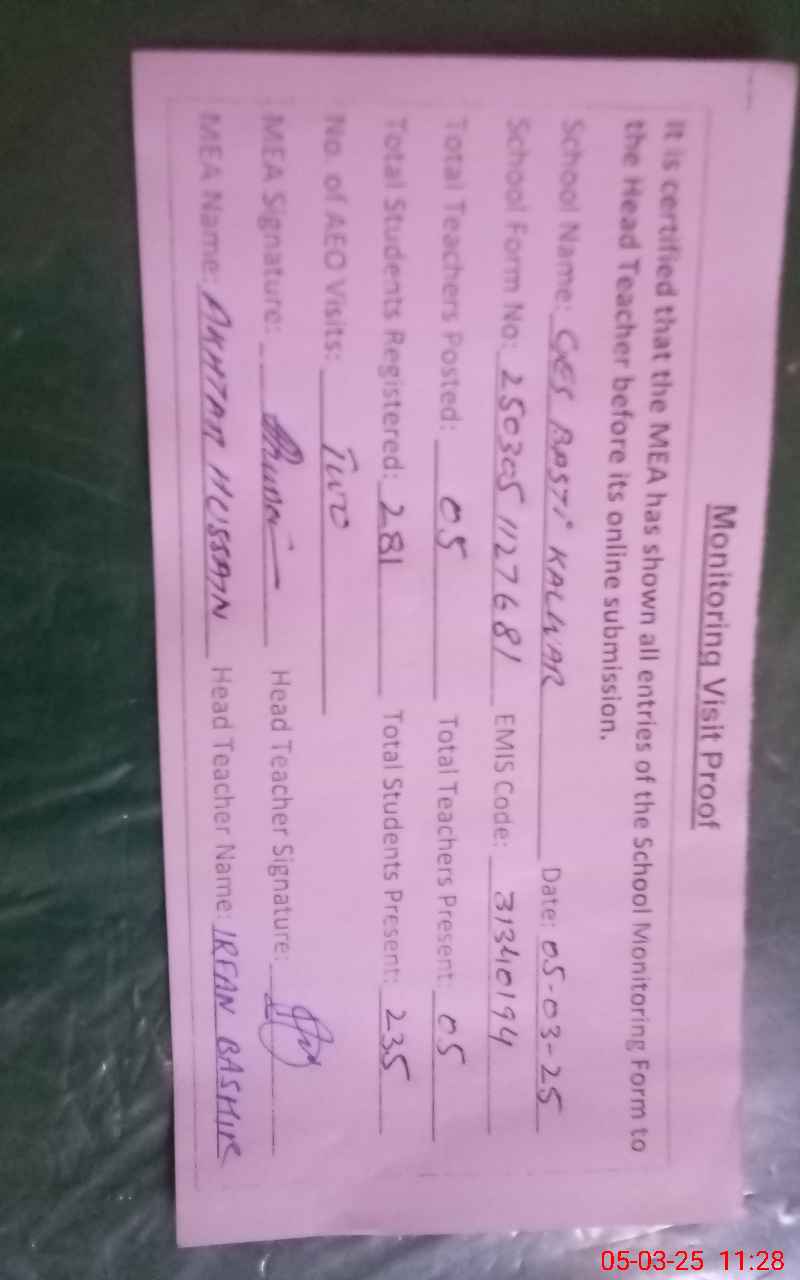 Monitoring Visit Proof
It is certified that the MEA has shown all entries of the School Monitoring Form to
the Head Teacher before its online submission.
School Name: GES BASTI KALWAR Date: 05-03-25
School Form No: 2503051127681 EMIS Code: 31340194
Total Teachers Posted: 05 Total Teachers Present: 05
Total Students Registered: 281 Total Students Present: 235
No. of AEO Visits: Two
MEA Signature: Head Teacher Signature:
MEA Name: AKHTAR HUSSAIN Head Teacher Name: IRFAN BASHIR
05-03-25 11:28